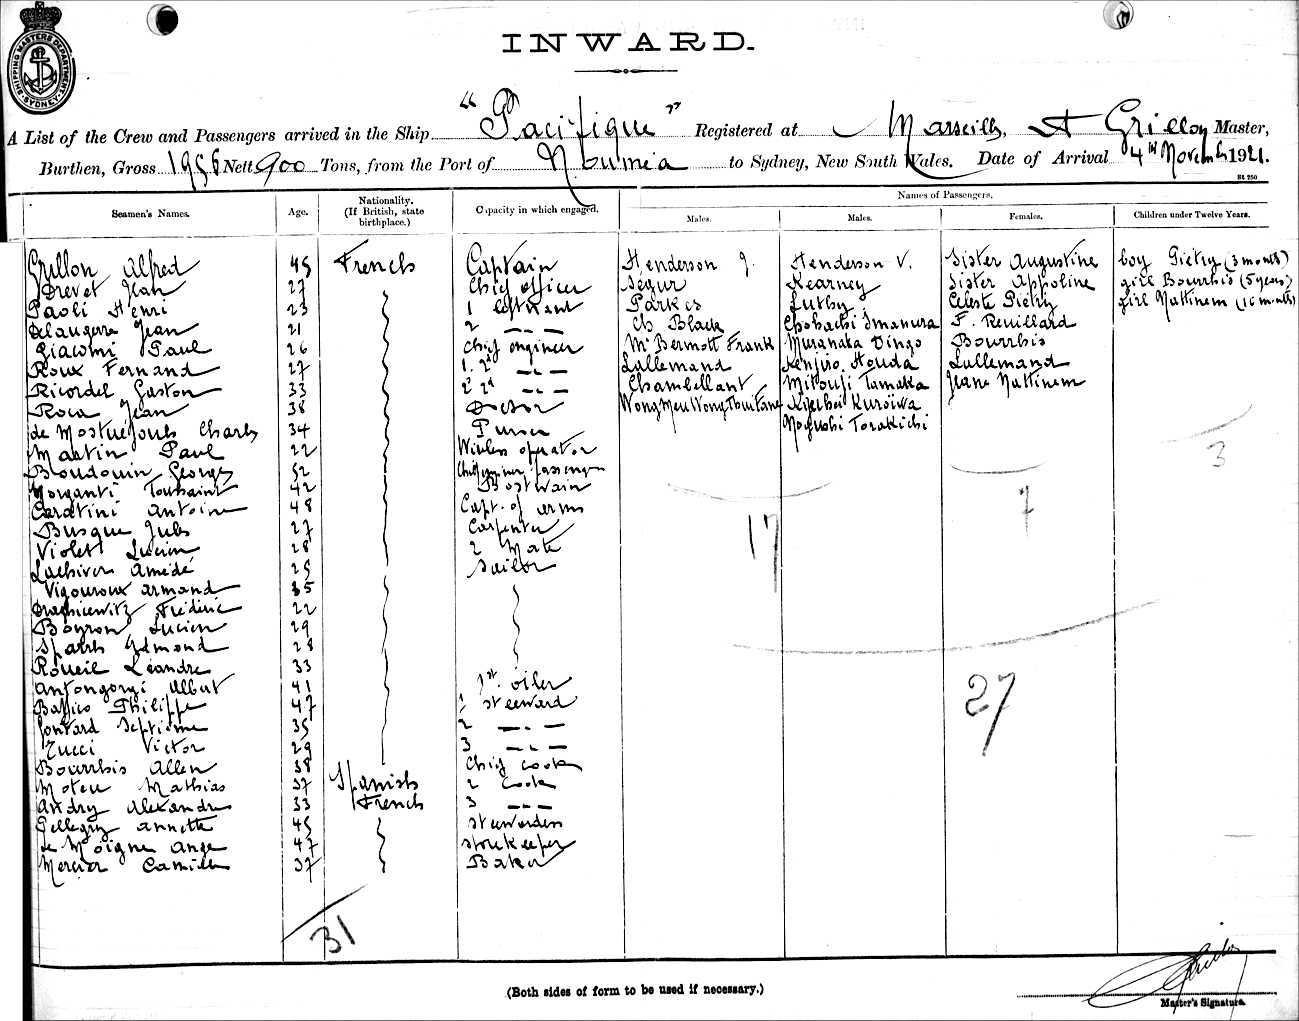 SHIPPING MASTERS DEPARTMENT SYDNEY
INWARD.
A List of the Crew and Passengers arrived in the Ship "Pacifique" Registered at Marseilles, A Grillon Master,
Burthen, Gross 1956 Nett 900 Tons, from the Port of Noumea to Sydney, New South Wales. Date of Arrival 4th November 1921.
St 250
Seamen's Names. Age. Nationality. (If British, state birthplace.) Capacity in which engaged. Names of Passengers.
Males. Males. Females. Children under Twelve Years.
Grillon Alfred 45 French Captain Henderson J. Henderson V. Sister Augustine boy Pietry (3 months)
Prevet Jean 27 Chief officer Segur Kearney Sister Appoline girl Bourrhis (5 years)
Paoli Henri 23 1 lieftnant Parkes Luthy Celeste Pietry girl Mattinem (16 months)
Delaugere Jean 21 2 — Ch Black Chobachi Imamura F. Reuillard
Giacomi Paul 26 Chief engineer Mc Dermott Frank Muranaka Dingo Bourrhis
Roux Fernand 27 1. 2d — Lallemand Kenjiro Houda Lallemand
Ricordel Gaston 33 2 2d — Chambellant Mitouji Tamaka Jeane Mattinem
Roca Jean 38 Doctor Wong Meu Wong Tbuitane Kijeibei Kuroiwa
de Mostuejouls Charles 34 Purser Noguchi Torakichi
Martin Paul 22 Wireless operator
Boudouin Georges 52 3
Morganti Toussaint 42 Bostwain
Caratini Antoine 48 Capt. of arms 7
Busque Jules 27 Carpenter 17
Violet Lucien 28 2 Mate
Lachiver Amédé 25 Sailor
Vigouroux Armand 35
Frédéric 22
Boyron Lucien 29
Sparth Edmond 28
Roueil Léandre 33
Antongorgi Albert 41 1st. oiler
Bassico Philippe 47 1 steeward 27
Jontard Septieme 35 2 —
Zucci Victor 29 3 —
Bourrhis Allen 38 Chief cook
Moteu Mathias 37 Spanish 2 cook
Andry Alexandre 33 French 3 —
Pellegry Annette 45 steewarden
Le Moigne Ange 47 storekeeper
Mercier Camille 37 Baker
31
(Both sides of form to be used if necessary.)
Master's Signature.